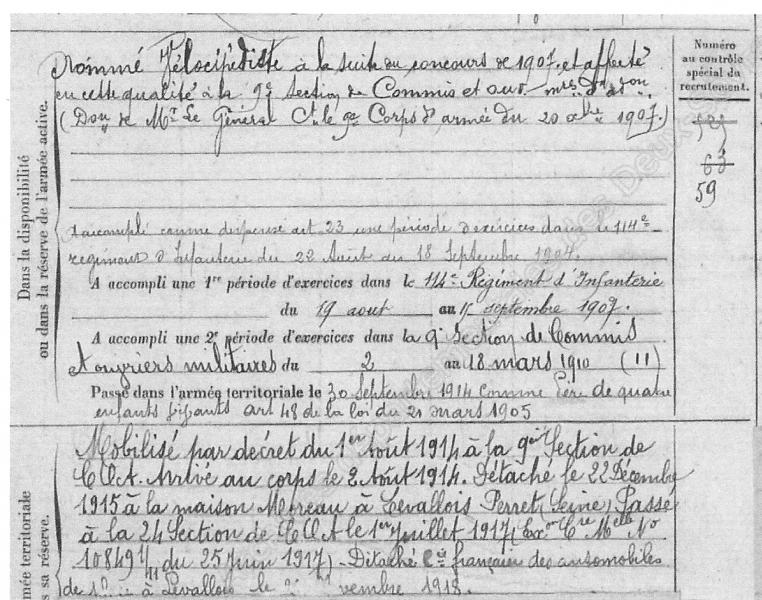 Nommé Vélocipédiste à la suite du concours de 1907, et affecté
en cette qualité à la 9e Section de Commis et ouv.
( de Mr Le Général Ct le 9e Corps d'armée du 20 1907.)
Numéro
au contrôle
spécial du
recrutement.
63
59
Dans la disponibilité
ou dans la réserve de l'armée active.
A accompli comme dispensé art 23 une période d'exercices dans le 114e
régiment d'Infanterie du 22 Août au 18 Septembre 1904.
A accompli une 1re période d'exercices dans le 114e Régiment d'Infanterie
du 19 aout au septembre 1907.
A accompli une 2e période d'exercices dans la 9e Section de Commis
et ouvriers militaires du 2 au 18 mars 1910 (11)
Passé dans l'armée territoriale le 30 Septembre 1914 comme Père de quatre
enfants vivants art 48 de la loi du 21 mars 1905
Mobilisé par décret du 1er Août 1914 à la 9e Section de
C.O.A. Arrivé au corps le 2 Août 1914. Détaché le 22 Décembre
1915 à la maison Moreau à Levallois Perret (Seine) Passé
à la 24 Section de C.O.A le 1er Juillet 1917 ( Melle No
10849 du 25 Juin 1917) - Détaché Cie française des automobiles
de à Levallois le vembre 1918.
mée territoriale
s sa réserve.